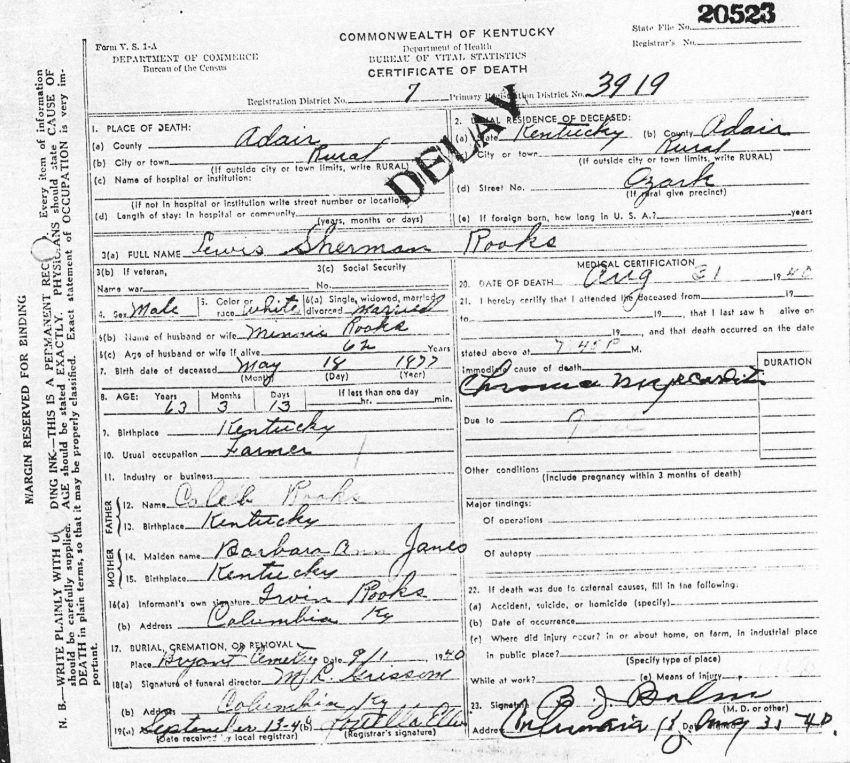 20523
State File No.
Registrar's No.
COMMONWEALTH OF KENTUCKY
Department of Health
BUREAU OF VITAL STATISTICS
CERTIFICATE OF DEATH
Form V. S. 1-A
DEPARTMENT OF COMMERCE
Bureau of the Census
Registration District No. 7 Primary Registration District No. 3919
DELAY
MARGIN RESERVED FOR BINDING
N. B.—WRITE PLAINLY WITH DING INK—THIS IS A PERMANENT REC Every item of information
should be carefully supplied. AGE should be stated EXACTLY. PHYSICIANS should state CAUSE OF
DEATH in plain terms, so that it may be properly classified. Exact statement of OCCUPATION is very im-
portant.
1. PLACE OF DEATH:
(a) County Adair
(b) City or town Rural
(If outside city or town limits, write RURAL)
(c) Name of hospital or institution:
(If not in hospital or institution write street number or location)
(d) Length of stay: In hospital or community
(years, months or days)
2. USUAL RESIDENCE OF DECEASED:
(a) State Kentucky (b) County Adair
City or town Rural
(If outside city or town limits, write RURAL)
(d) Street No. Ozark
(If rural give precinct)
(e) If foreign born, how long in U. S. A.? years
3(a) FULL NAME Lewis Sherman Rooks
3(b) If veteran, 3(c) Social Security
Name war No.
4. Sex Male 5. Color or race white 6(a) Single, widowed, married, divorced married
6(b) Name of husband or wife Minnie Rooks
6(c) Age of husband or wife if alive 62 Years
7. Birth date of deceased May 18 1877
(Month) (Day) (Year)
8. AGE: Years Months Days If less than one day
63 3 13 hr. min.
9. Birthplace Kentucky
10. Usual occupation Farmer
11. Industry or business
FATHER
12. Name Caleb Rooks
13. Birthplace Kentucky
MOTHER
14. Maiden name Barbara Ann Janes
15. Birthplace Kentucky
16(a) Informant's own signature Irvin Rooks
(b) Address Columbia Ky
17. BURIAL, CREMATION, OR REMOVAL
Place Bryant Cemetery Date 9/1 1940
18(a) Signature of funeral director M. R. Grissom
(b) Address Columbia Ky
19(a) September 13-40 (b)
(Date received by local registrar) (Registrar's signature)
MEDICAL CERTIFICATION
20. DATE OF DEATH Aug 31 1940
21. I hereby certify that I attended the deceased from 19
to 19 , that I last saw h alive on
19 , and that death occurred on the date
stated above at 7 45 P M.
Immediate cause of death DURATION
Chronic Myocarditis
Due to
Other conditions
(Include pregnancy within 3 months of death)
Major findings:
Of operations
Of autopsy
22. If death was due to external causes, fill in the following:
(a) Accident, suicide, or homicide (specify)
(b) Date of occurrence
(c) Where did injury occur? in or about home, on farm, in industrial place
in public place?
(Specify type of place)
While at work? (e) Means of injury
23. Signature B. J. Bolin
(M. D. or other)
Address Columbia Ky Date Aug 31-40.